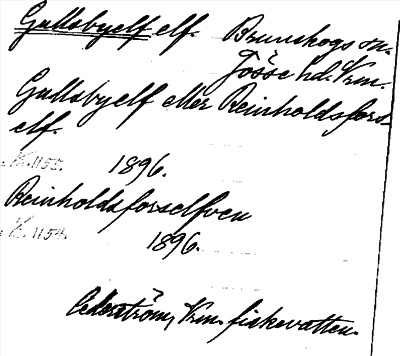 Gullsbyelf elf. Brunskogs sn.
Jösse hd. Vrm.
Gullsbyelf eller Reinholdsfors
elf.
K. 1155. 1896.
Reinholdsforselfven
K. 1154. 1896.
Cederström, Vrm. fiskevatten.